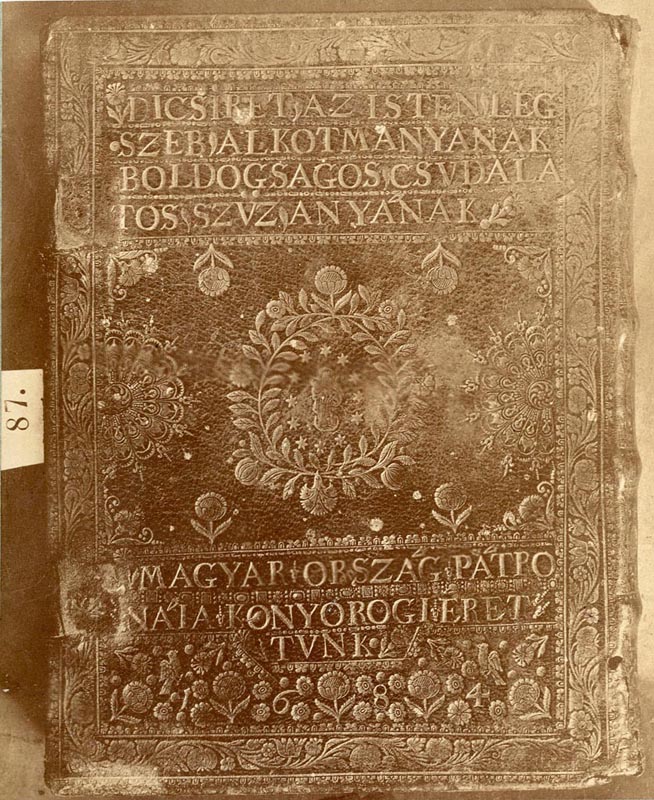 DICSIRET, AZ ISTEN LEG
SZEB, ALKOTMANYANAK
BOLDOGSAGOS, CSUDALA
TOS, SZUZ, ANYÁNAK
MAGYAR ORSZÁG, PÁTRO
NÁIA KONYOROGI ÉRET
TVNK
1 6 8 4
87.